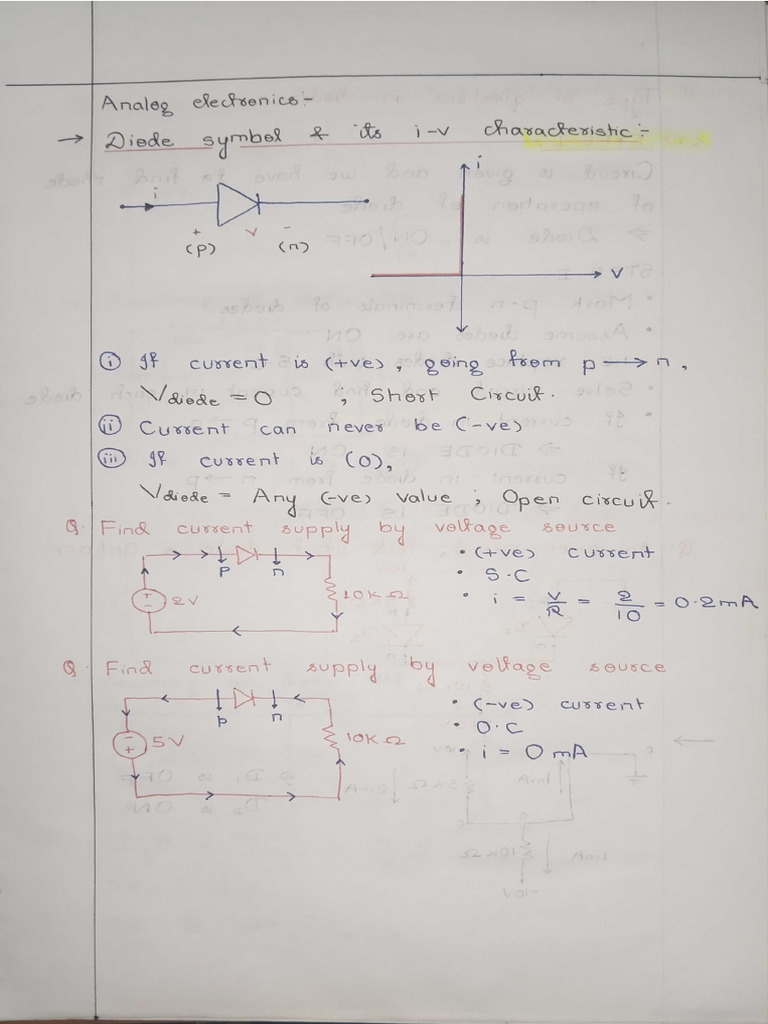 Analog electronics:-
→ Diode symbol & its i-v characteristic:-
i
i
+ v -
(p) (n)
v
(i) If current is (+ve), going from p → n,
Vdiode = 0 ; Short Circuit.
(ii) Current can never be (-ve)
(iii) If current is (0),
Vdiode = Any (-ve) value ; Open circuit.
Q. Find current supply by voltage source
p n
+
-
2V
10KΩ
• (+ve) current
• S.C
• i = V/R = 2/10 = 0.2mA
Q. Find current supply by voltage source
p n
-
+
5V
10KΩ
• (-ve) current
• O.C
• i = 0 mA